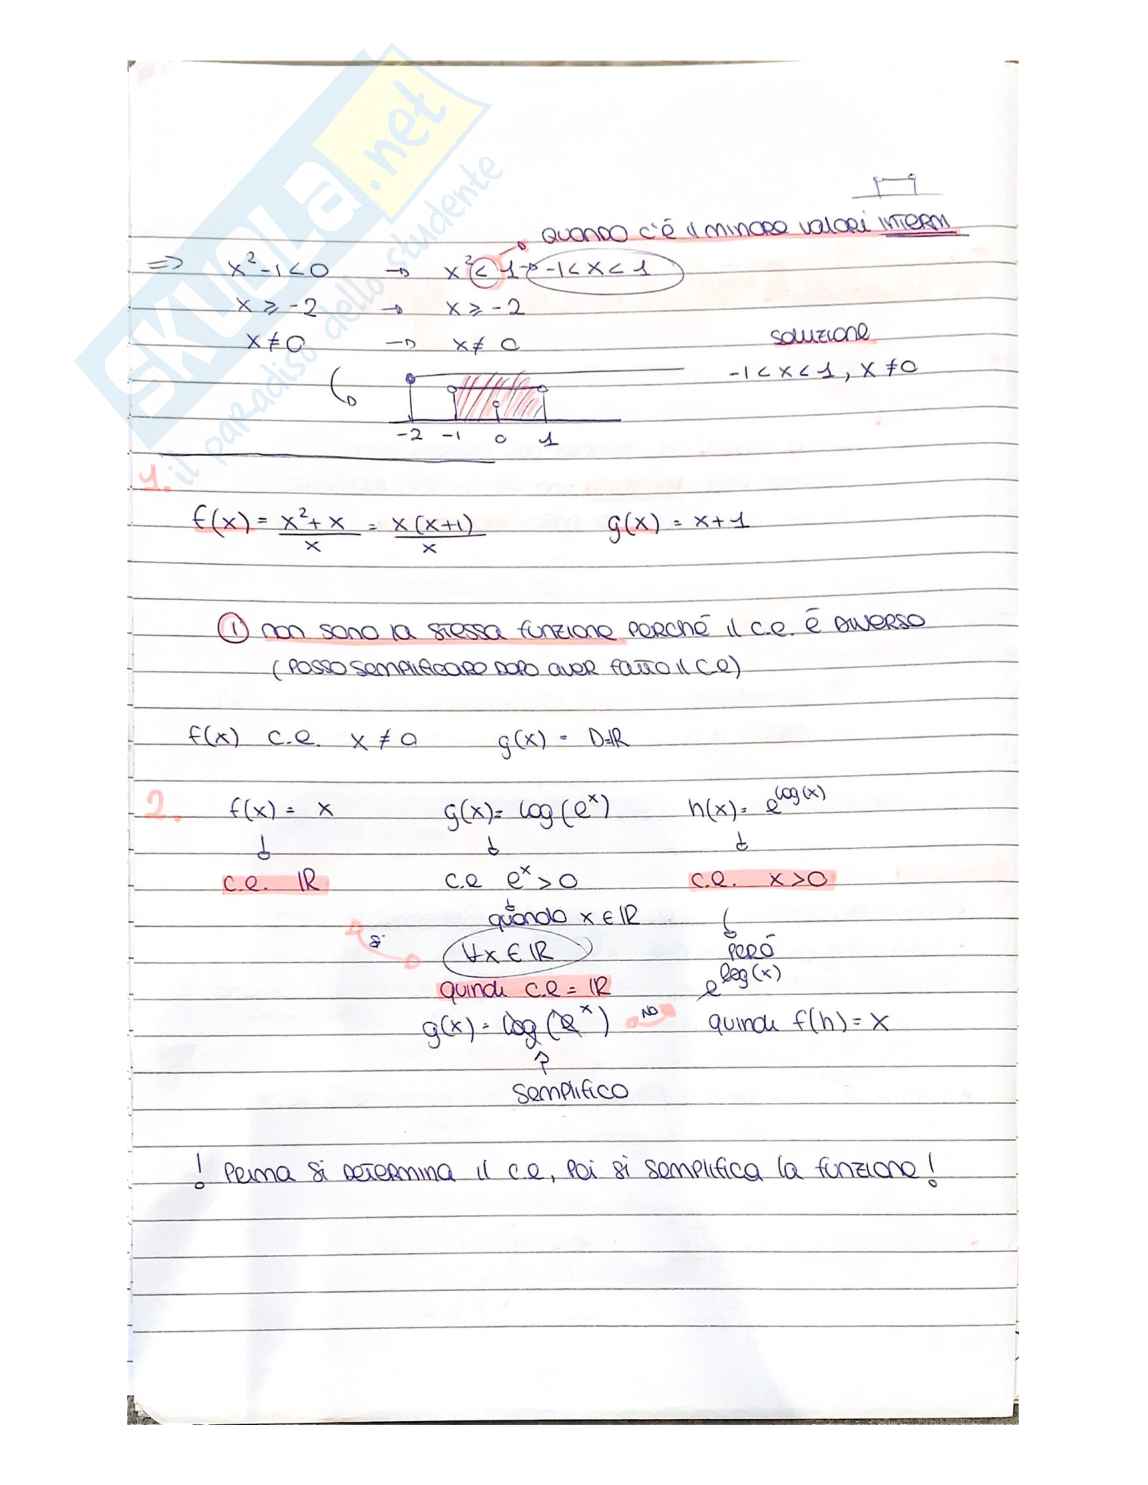 SKUOLA.net
il paradiso dello studente
QUANDO C'È IL MINORE VALORI INTERNI
=> x² - 1 < 0 → x² < 1 → -1 < x < 1
x ≥ -2 → x ≥ -2
x ≠ 0 → x ≠ 0
SOLUZIONE
-1 < x < 1, x ≠ 0
-2 -1 0 1
1.
f(x) = x² + x / x = x(x+1) / x g(x) = x + 1
① non sono la stessa funzione PERCHÉ il C.E. È DIVERSO
(POSSO SEMPLIFICARE DOPO AVER FATTO IL C.E)
f(x) c.e. x ≠ 0 g(x) = D=ℝ
2. f(x) = x g(x) = log(e^x) h(x) = e^log(x)
↓ ↓ ↓
c.e. ℝ c.e e^x > 0 c.e. x > 0
quando x ∈ ℝ
si ∀x ∈ ℝ PERÒ
quindi c.e = ℝ e^log(x)
g(x) = log(e^x) NO quindi f(h) = x
↑
SEMPLIFICO
! PRIMA SI DETERMINA IL C.E, POI SI SEMPLIFICA LA FUNZIONE!